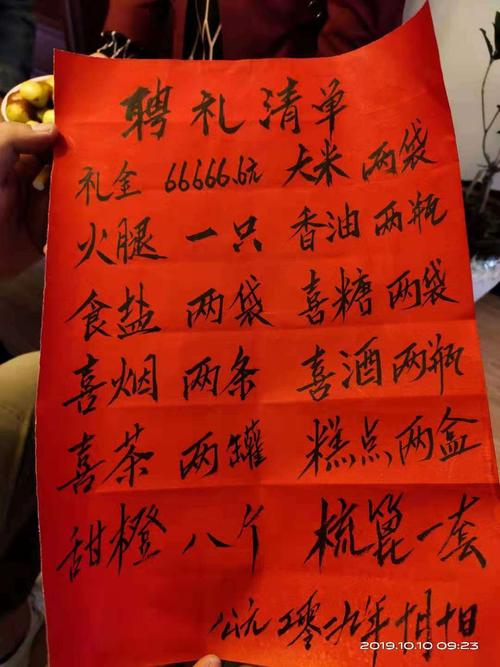 聘礼清单
礼金 66666.6元 大米 两袋
火腿 一只 香油 两瓶
食盐 两袋 喜糖 两袋
喜烟 两条 喜酒 两瓶
喜茶 两罐 糕点 两盒
甜橙 八个 梳篦 一套
公元二零一九年十月十日
2019.10.10 09:23